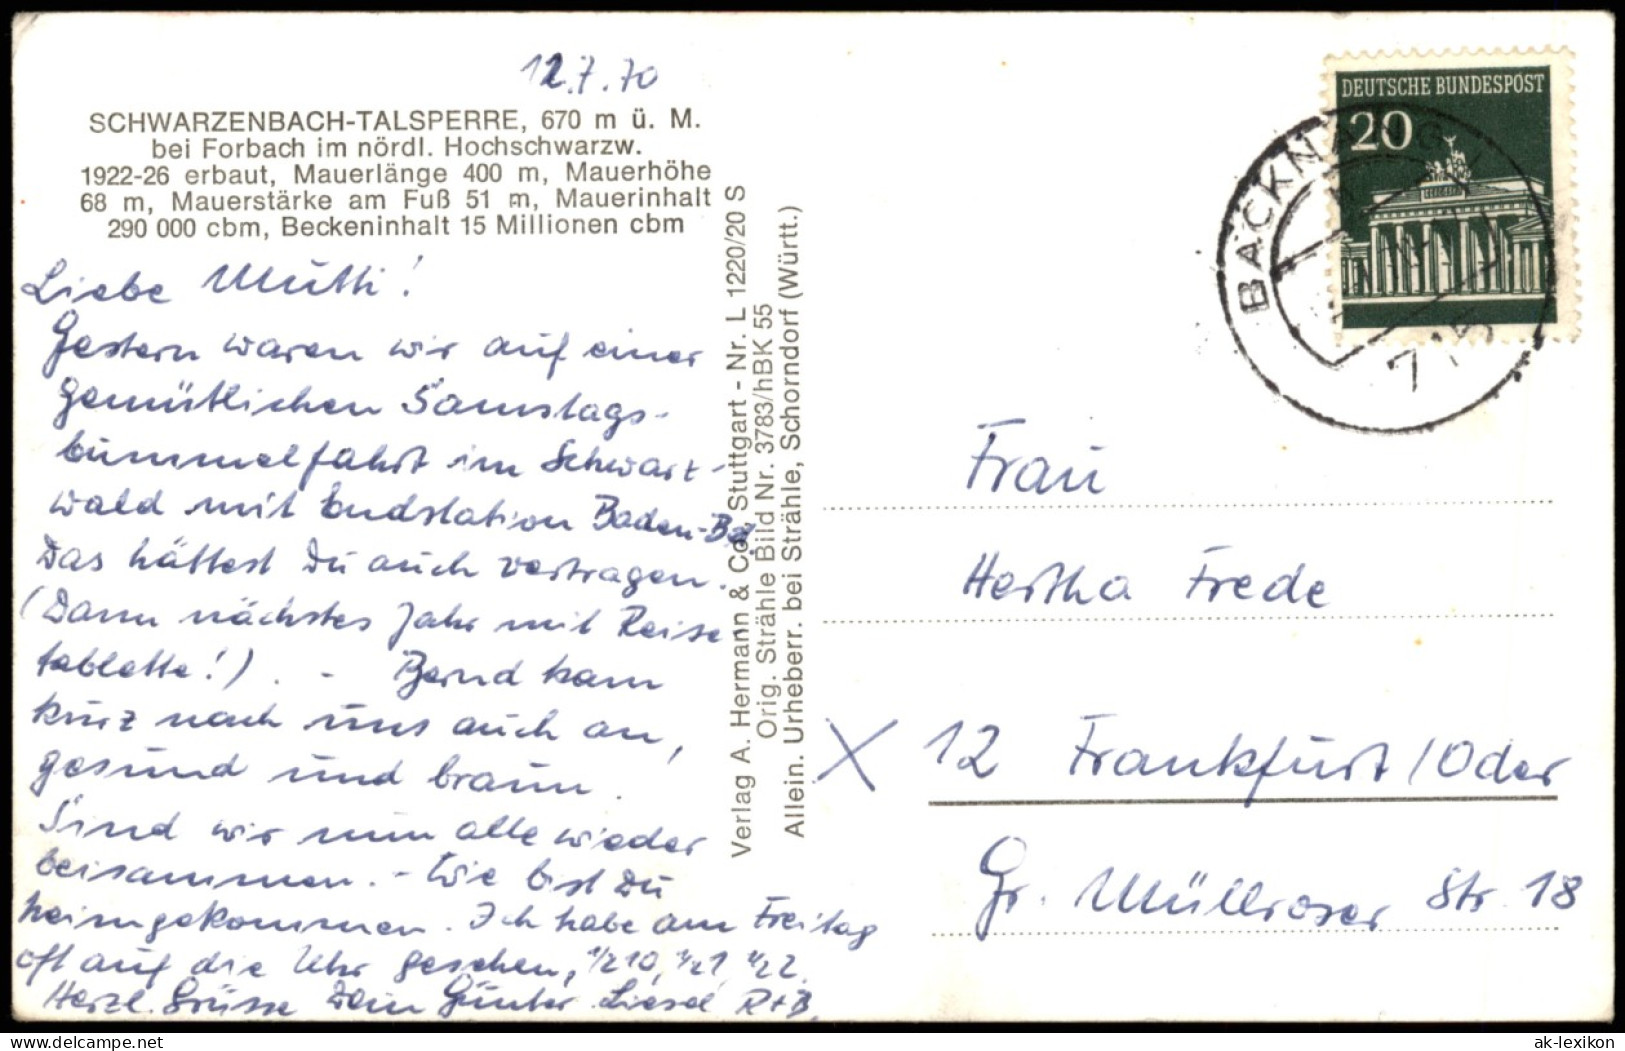 12.7.70
SCHWARZENBACH-TALSPERRE, 670 m ü. M.
bei Forbach im nördl. Hochschwarzw.
1922-26 erbaut, Mauerlänge 400 m, Mauerhöhe
68 m, Mauerstärke am Fuß 51 m, Mauerinhalt
290 000 cbm, Beckeninhalt 15 Millionen cbm
Liebe Mutti!
Gestern waren wir auf einer
gemütlichen Samstags-
bummelfahrt im Schwarz-
wald mit Endstation Baden-Bad.
Das hättest Du auch vertragen.
(Dann nächstes Jahr mit Reise-
tablette!). - Bernd kam
kurz nach uns auch an,
gesund und braun.
Sind wir nun alle wieder
beisammen. - Wie bist Du
heimgekommen. Ich habe am Freitag
oft auf die Uhr gesehen, 1/2 10, 1/2 1, 1/2 2.
Herzl. Grüsse Dein Günter Liesel R+B.
Verlag A. Hermann & Co. Stuttgart - Nr. L 1220/20 S
Orig. Strähle Bild Nr. 3783/hBK 55
Allein. Urheberr. bei Strähle, Schorndorf (Württ.)
DEUTSCHE BUNDESPOST
20
BACKNANG
7 15
Frau
Hertha Frede
X 12 Frankfurt/Oder
Gr. Müllroser Str. 18
ak-lexikon